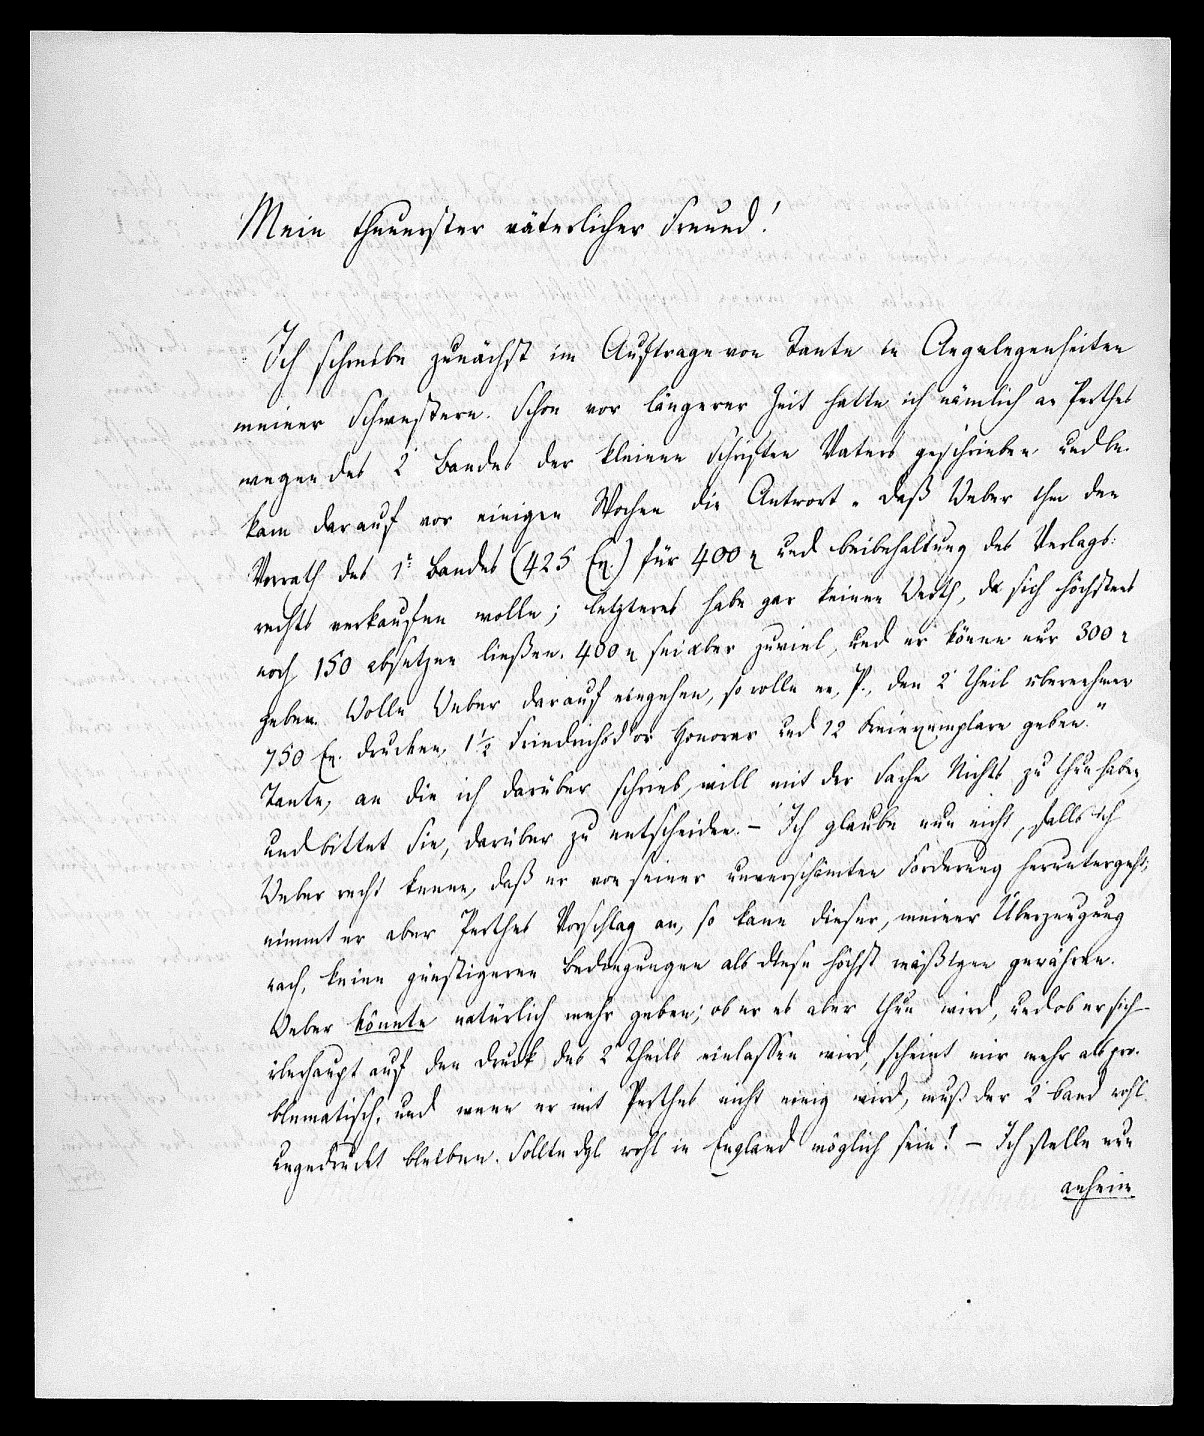 Mein theuerster väterlicher Freund!
Ich schreibe zunächst im Auftrage von Tante in Angelegenheiten
meiner Schwestern. Schon vor längerer Zeit hatte ich nämlich an Perthes
wegen des 2 Bandes der kleinen Schriften Vaters geschrieben und be-
kam darauf vor einigen Wochen die Antwort „ daß Weber ihm den
Vorrath des 1r Bandes (425 Ex.) für 400 und Beibehaltung des Verlags:
rechts verkaufen wolle; letzteres habe gar keinen Werth, da sich höchstens
noch 150 absetzen ließen. 400 sei aber zuviel, und er könne nur 300
geben. Wolle Weber darauf eingehen, so wolle er, P., den 2 Theil übernehmen
750 Ex. drucken, 1½ Friedrichsd'or Honorar und 12 Freiexemplare geben."
Tante, an die ich darüber schrieb, will mit der Sache Nichts zu thun haben,
und bittet Sie, darüber zu entscheiden. – Ich glaube nun nicht, falls ich
Weber recht kenne, daß er von seiner unverschämten Forderung heruntergeht;
nimmt er aber Perthes Vorschlag an, so kann dieser, meiner Überzeugung
nach, keine günstigeren Bedingungen als diese höchst mäßigen gewähren.
Weber könnte natürlich mehr geben; ob er es aber thun wird, und ob er sich
überhaupt auf den Druck des 2 Theils einlassen wird, scheint mir mehr als pro-
blematisch, und wenn er mit Perthes nicht einig wird, muß der 2 Band wohl
ungedruckt bleiben. Sollte dgl wohl in England möglich sein! – Ich stelle nun
anheim